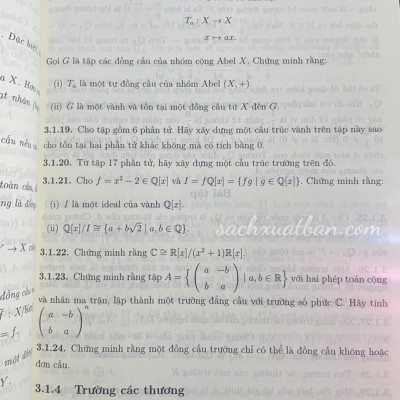 T_a : X → X
x ↦ ax.
Gọi G là tập các đồng cấu của nhóm cộng Abel X. Chứng minh rằng:
(i) T_a là một tự đồng cấu của nhóm Abel (X, +)
(ii) G là một vành và tồn tại một đồng cấu từ X đến G.
3.1.19. Cho tập gồm 6 phần tử. Hãy xây dựng một cấu trúc vành trên tập này sao
cho tồn tại hai phần tử khác không mà có tích bằng 0.
3.1.20. Từ tập 17 phần tử, hãy xây dựng một cấu trúc trường trên đó.
3.1.21. Cho f = x² − 2 ∈ ℚ[x] và I = fℚ[x] = {fg | g ∈ ℚ[x]}. Chứng minh rằng:
(i) I là một ideal của vành ℚ[x].
(ii) ℚ[x]/I ≅ {a + b√2 | a, b ∈ ℚ}.
sachxuatban.com
3.1.22. Chứng minh rằng ℂ ≅ ℝ[x]/(x² + 1)ℝ[x].
3.1.23. Chứng minh rằng tập A = { ( a −b
b a ) | a, b ∈ ℝ } với hai phép toán cộng
và nhân ma trận, lập thành một trường đẳng cấu với trường số phức ℂ. Hãy tính
( a −b
b a )ⁿ
3.1.24. Chứng minh rằng một đồng cấu trường chỉ có thể là đồng cấu không hoặc
đơn cấu.
3.1.4 Trường các thương